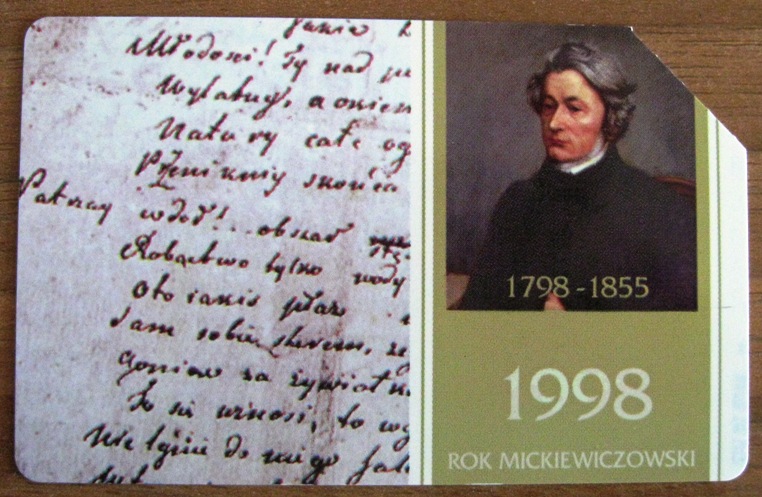 Młodości! Ty nad
Wylatuj, a okiem
Natury całe og
Przeniknij z końca
Patrzay w doł! obszar
Robactwo tylko wody
Oto iakiś płaz
Sam sobie sterem, że
Goniąc za żywiołk
To się wznosi, to w g
Nie lgnie do niego fala
1798 - 1855
1998
ROK MICKIEWICZOWSKI